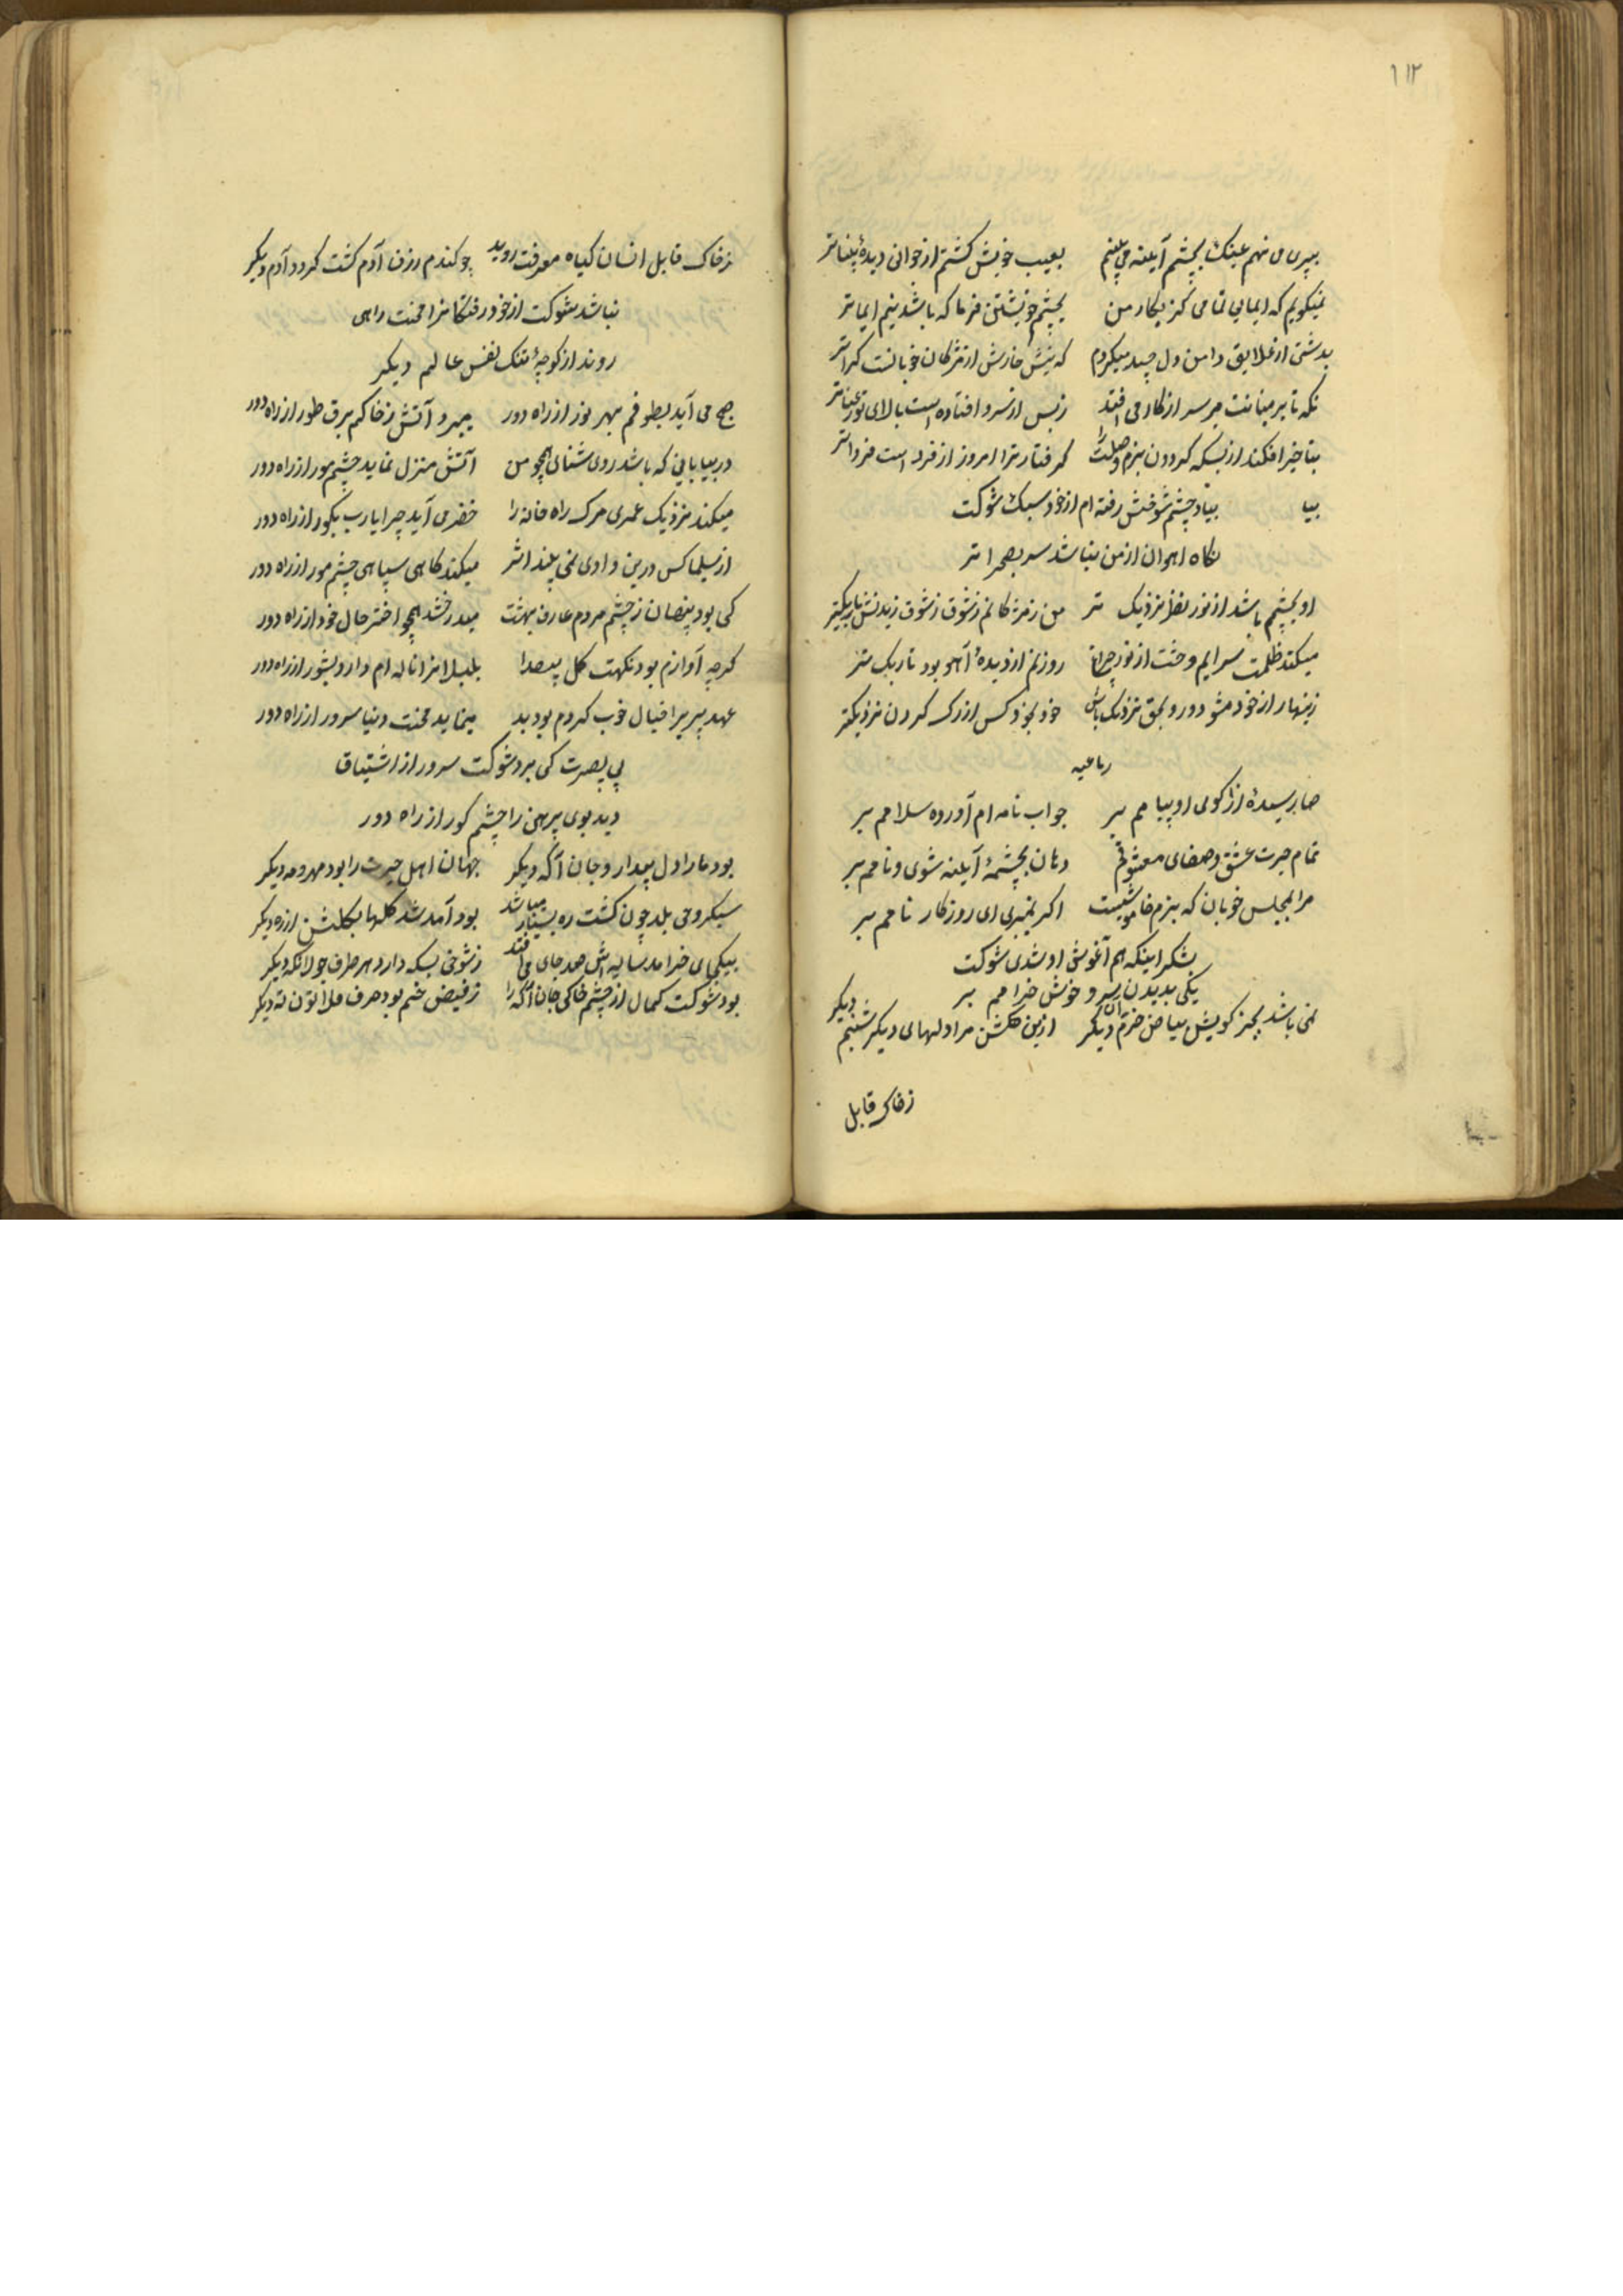 ۱۱۲
بپیری می نهم عینک بچشم آینه می بینم بعیب خویش کشتم از جوانی دیدهٔ بیناتر
نمیکویم که ایمایی تمامی کن بکار من بچشم خویشتن فرما که باشد نیم ایماتر
بدشتی از علایق دامن دل چیده میکردم که نیش خارش از مژکان خوبانست کیراتر
نکه تا بر میانت میرسد از کار می افتد ز بس از سرو افتاده است بالای تو رعناتر
بتاخیر افکند از بسکه کردون بزم وصلت را کرفتار ترا امروز از فرد است فرداتر
بیا بیاد چشم شوخش رفته ام از خود سبک شوکت
نکاه اهوان از من نباشد سر بصحراتر
او بچشم باشد از نور نظر نزدیک تر من ز مژکانم ز شوق دیدنش باریکتر
میکند ظلمت سرایم وحشت از نور چراغ روزنم از دیدهٔ آهو بود تاریک تر
زینهار از خود مشو دور و بحق نزدیک باش خود بخود کس از رک کردن نزدیکتر
رباعیه
صبا رسیدهٔ از کوی او پیامم بر جواب نامه ام آورده سلامم بر
تمام حیرت عشق و صفای معشوقم دهان بچشمهٔ آینه شوی و نامم بر
مرا بمجلس خوبان که بزم خاموشیست اکر نمیبری ای روزکار نامم بر
بشکر اینکه هم آغوش او شدی شوکت
یکی بدیدن آن سرو خوش خرامم بر
نمی باشد بجز کویش بیاض خرم دیکر ازین کلشن مراد لهای دیکر شبنم دیکر
ز خاک قابل
ز خاک قابل انسان کیاه معرفت روید چو کندم رزق آدم کشت کردد آدم دیکر
نباشد شوکت از خود رفتکانرا محنت راهی
روند از کوچهٔ تنک نفس عالم دیکر
صبح می آید بطوفم بهر نور از راه دور میبرد آتش ز خاکم برق طور از راه دور
در بیابانی که باشد روشنای همچو من آتش منزل نماید چشم مور از راه دور
میکند نزدیک عمری مرک راه خانه را خضر می آید چرا یا رب بکور از راه دور
از سلیما کس درین وادی نمی بیند اثر میکند کاهی سیاهی چشم مور از راه دور
کی بود پنهان ز چشم مردم عارف بهشت میدرخشد همچو اختر حال خود از راه دور
کرچه آوازم بود نکهت کل بیصدا بلبلانرا ناله ام دارد بشور از راه دور
عهد پیریرا خیال خوب کردم بود بد مینماید محنت دنیا سرور از راه دور
بی بصیرت کی برد شوکت سرور از اشتیاق
دید بوی پیرهن را چشم کور از راه دور
بود ما را دل بیدار و جان آکه دیکر جهان اهل حیرت را بود مهر و مه دیکر
سبکروحی بلد چون کشت ره بسیار میباشد بود آمد شد کلها بکلشن از ره دیکر
بیکجای خرامد سایه اش صد جای می افتد ز شوخی بسکه دارد هر طرف جولانکه دیکر
بود شوکت کمال از چشم خاکی جان آکه را ز فیض خم بود حرف فلاطون ته دیکر